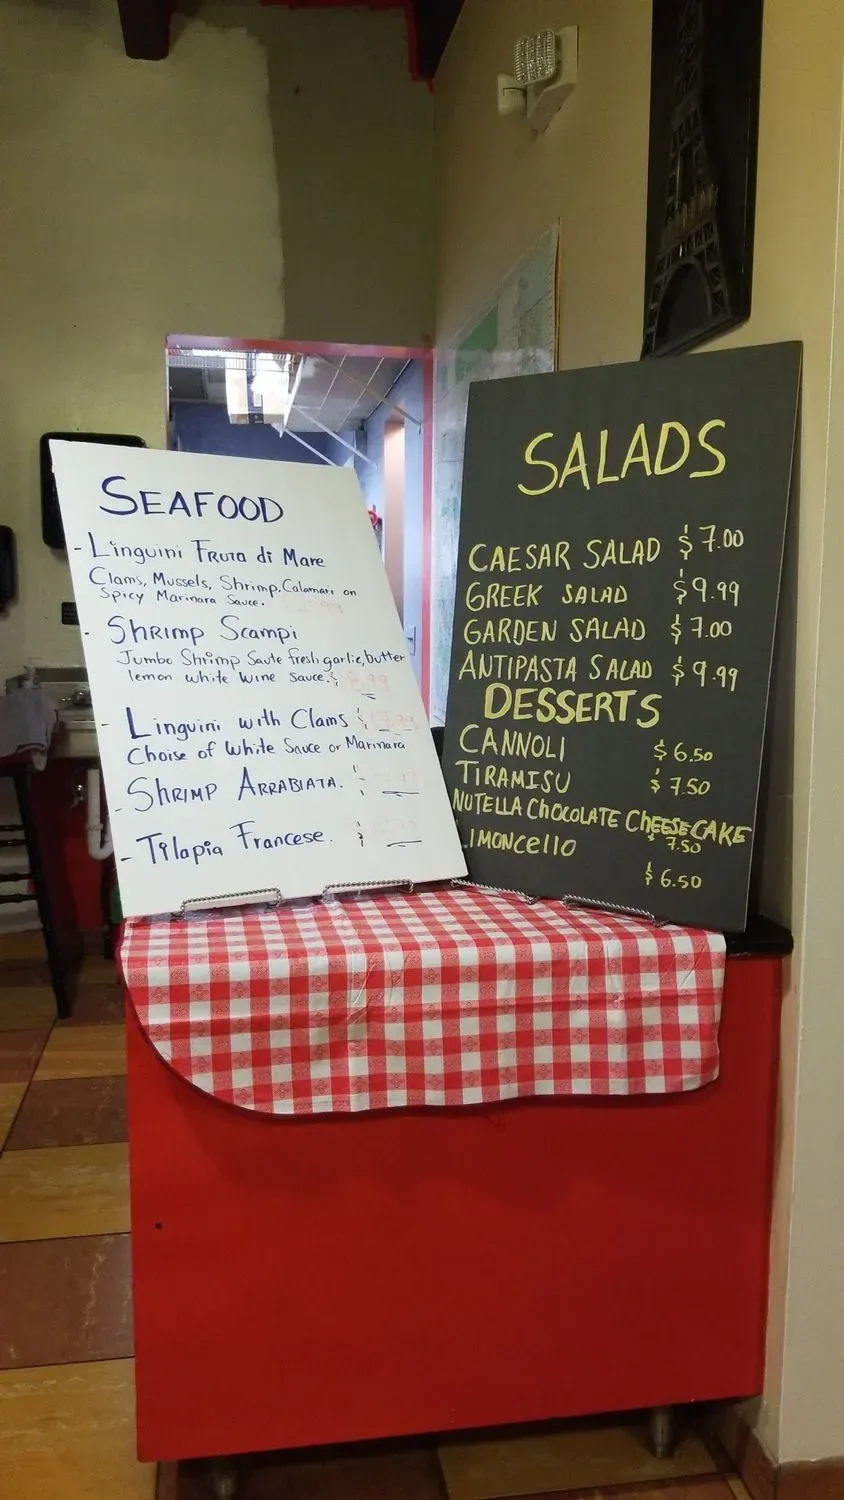 SEAFOOD
- Linguini Fruta di Mare
Clams, Mussels, Shrimp, Calamari on
Spicy Marinara Sauce.
- Shrimp Scampi
Jumbo Shrimp Saute fresh garlic, butter
lemon white wine sauce. $
- Linguini with Clams $
Choise of White Sauce or Marinara
- Shrimp Arrabiata. $
- Tilapia Francese. $
SALADS
CAESAR SALAD $7.00
GREEK SALAD $9.99
GARDEN SALAD $7.00
ANTIPASTA SALAD $9.99
DESSERTS
CANNOLI $6.50
TIRAMISU $7.50
NUTELLA CHOCOLATE CHEESECAKE
$7.50
LIMONCELLO
$6.50